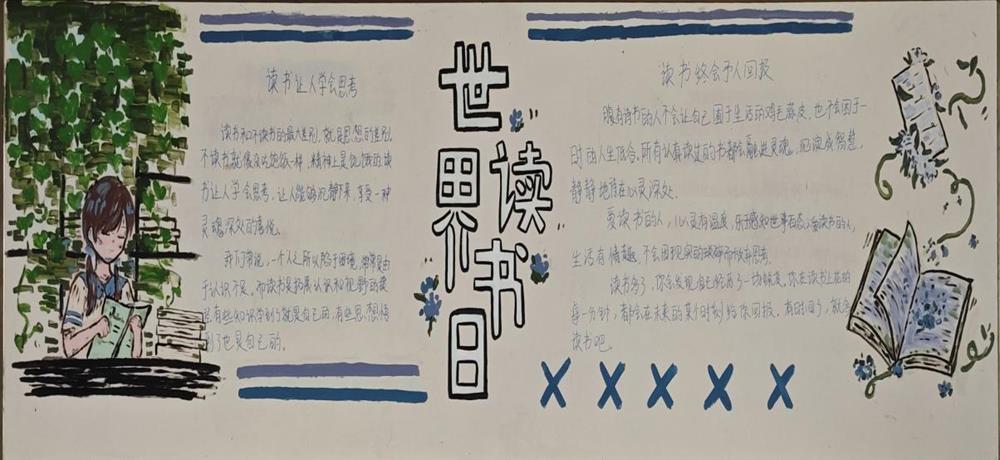 读书让人学会思考
读书和不读书的最大差别,就是思想的差别,
不读书就像没吃饱饭一样,精神上是饥饿的读
书让人学会思考,让人能够沉静下来,享受一种
灵魂深处的愉悦。
我们常说,一个人之所以陷于困境,常常是由
于认识不足,而读书是拓展认识和视野的
有些知识学到了就是自己的,有些思想悟
到了也是自己的。
世界读书日
读书终会予人回报
腹有诗书的人不会让自己困于生活的鸡毛蒜皮,也不会困于一
时的人生低谷。所有认真读过的书都会融进灵魂,沉淀成智慧,
静静地待在心灵深处。
爱读书的人,心灵有温度,乐于感知世事百态;爱读书的人,
生活有情趣,不会因现实的
读书多了,你会发现自己经历了一切
每一分钟,都会在未来的某个时刻给你回报。有时间了,就多
读书吧。